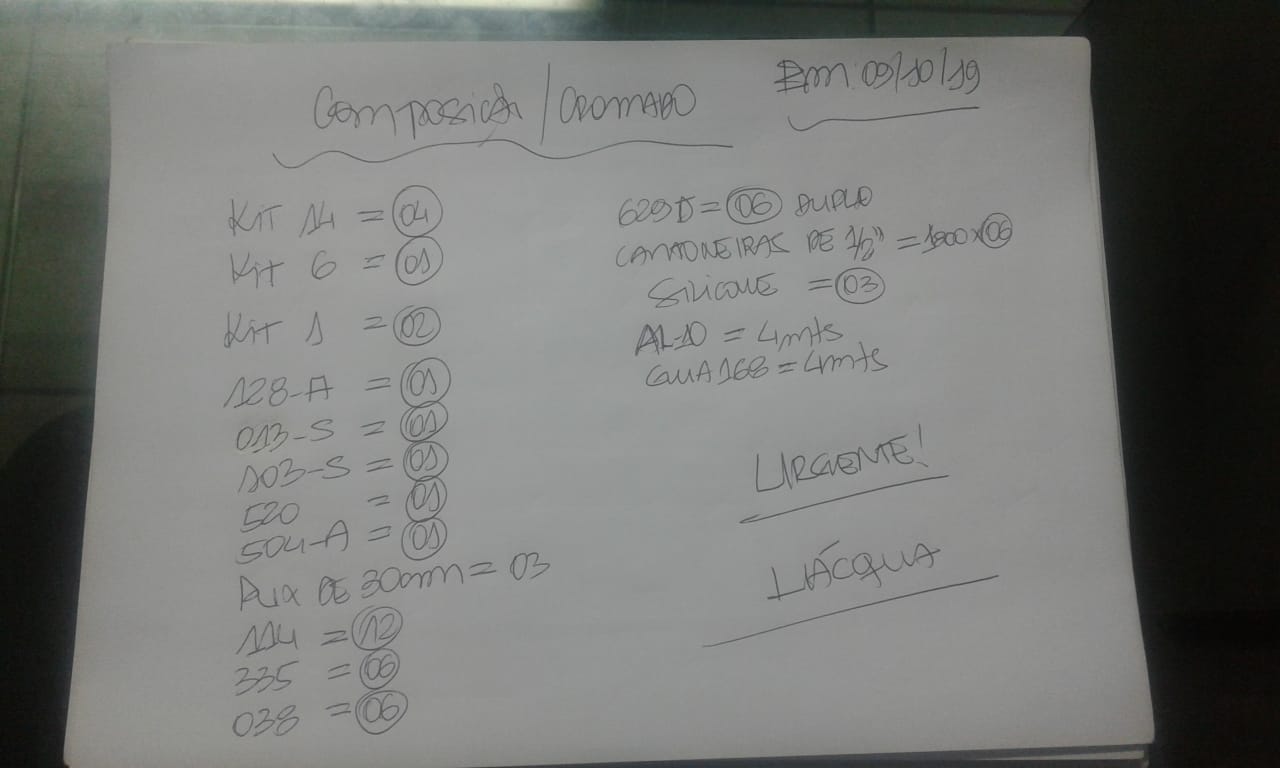 Composição / CROMADO
Em 09/10/19
KIT 14 = 04
Kit 6 = 01
Kit 1 = 02
128-A = 01
013-S = 01
103-S = 01
520 = 01
504-A = 01
PUX DE 30cm = 03
114 = 12
335 = 06
038 = 06
629D = 06 DUPLO
CANTONEIRAS DE 1/2" = 1800 x 06
SILICONE = 03
AL-10 = 4mts
GUA168 = 4mts
URGENTE!
L'ÁCQUA